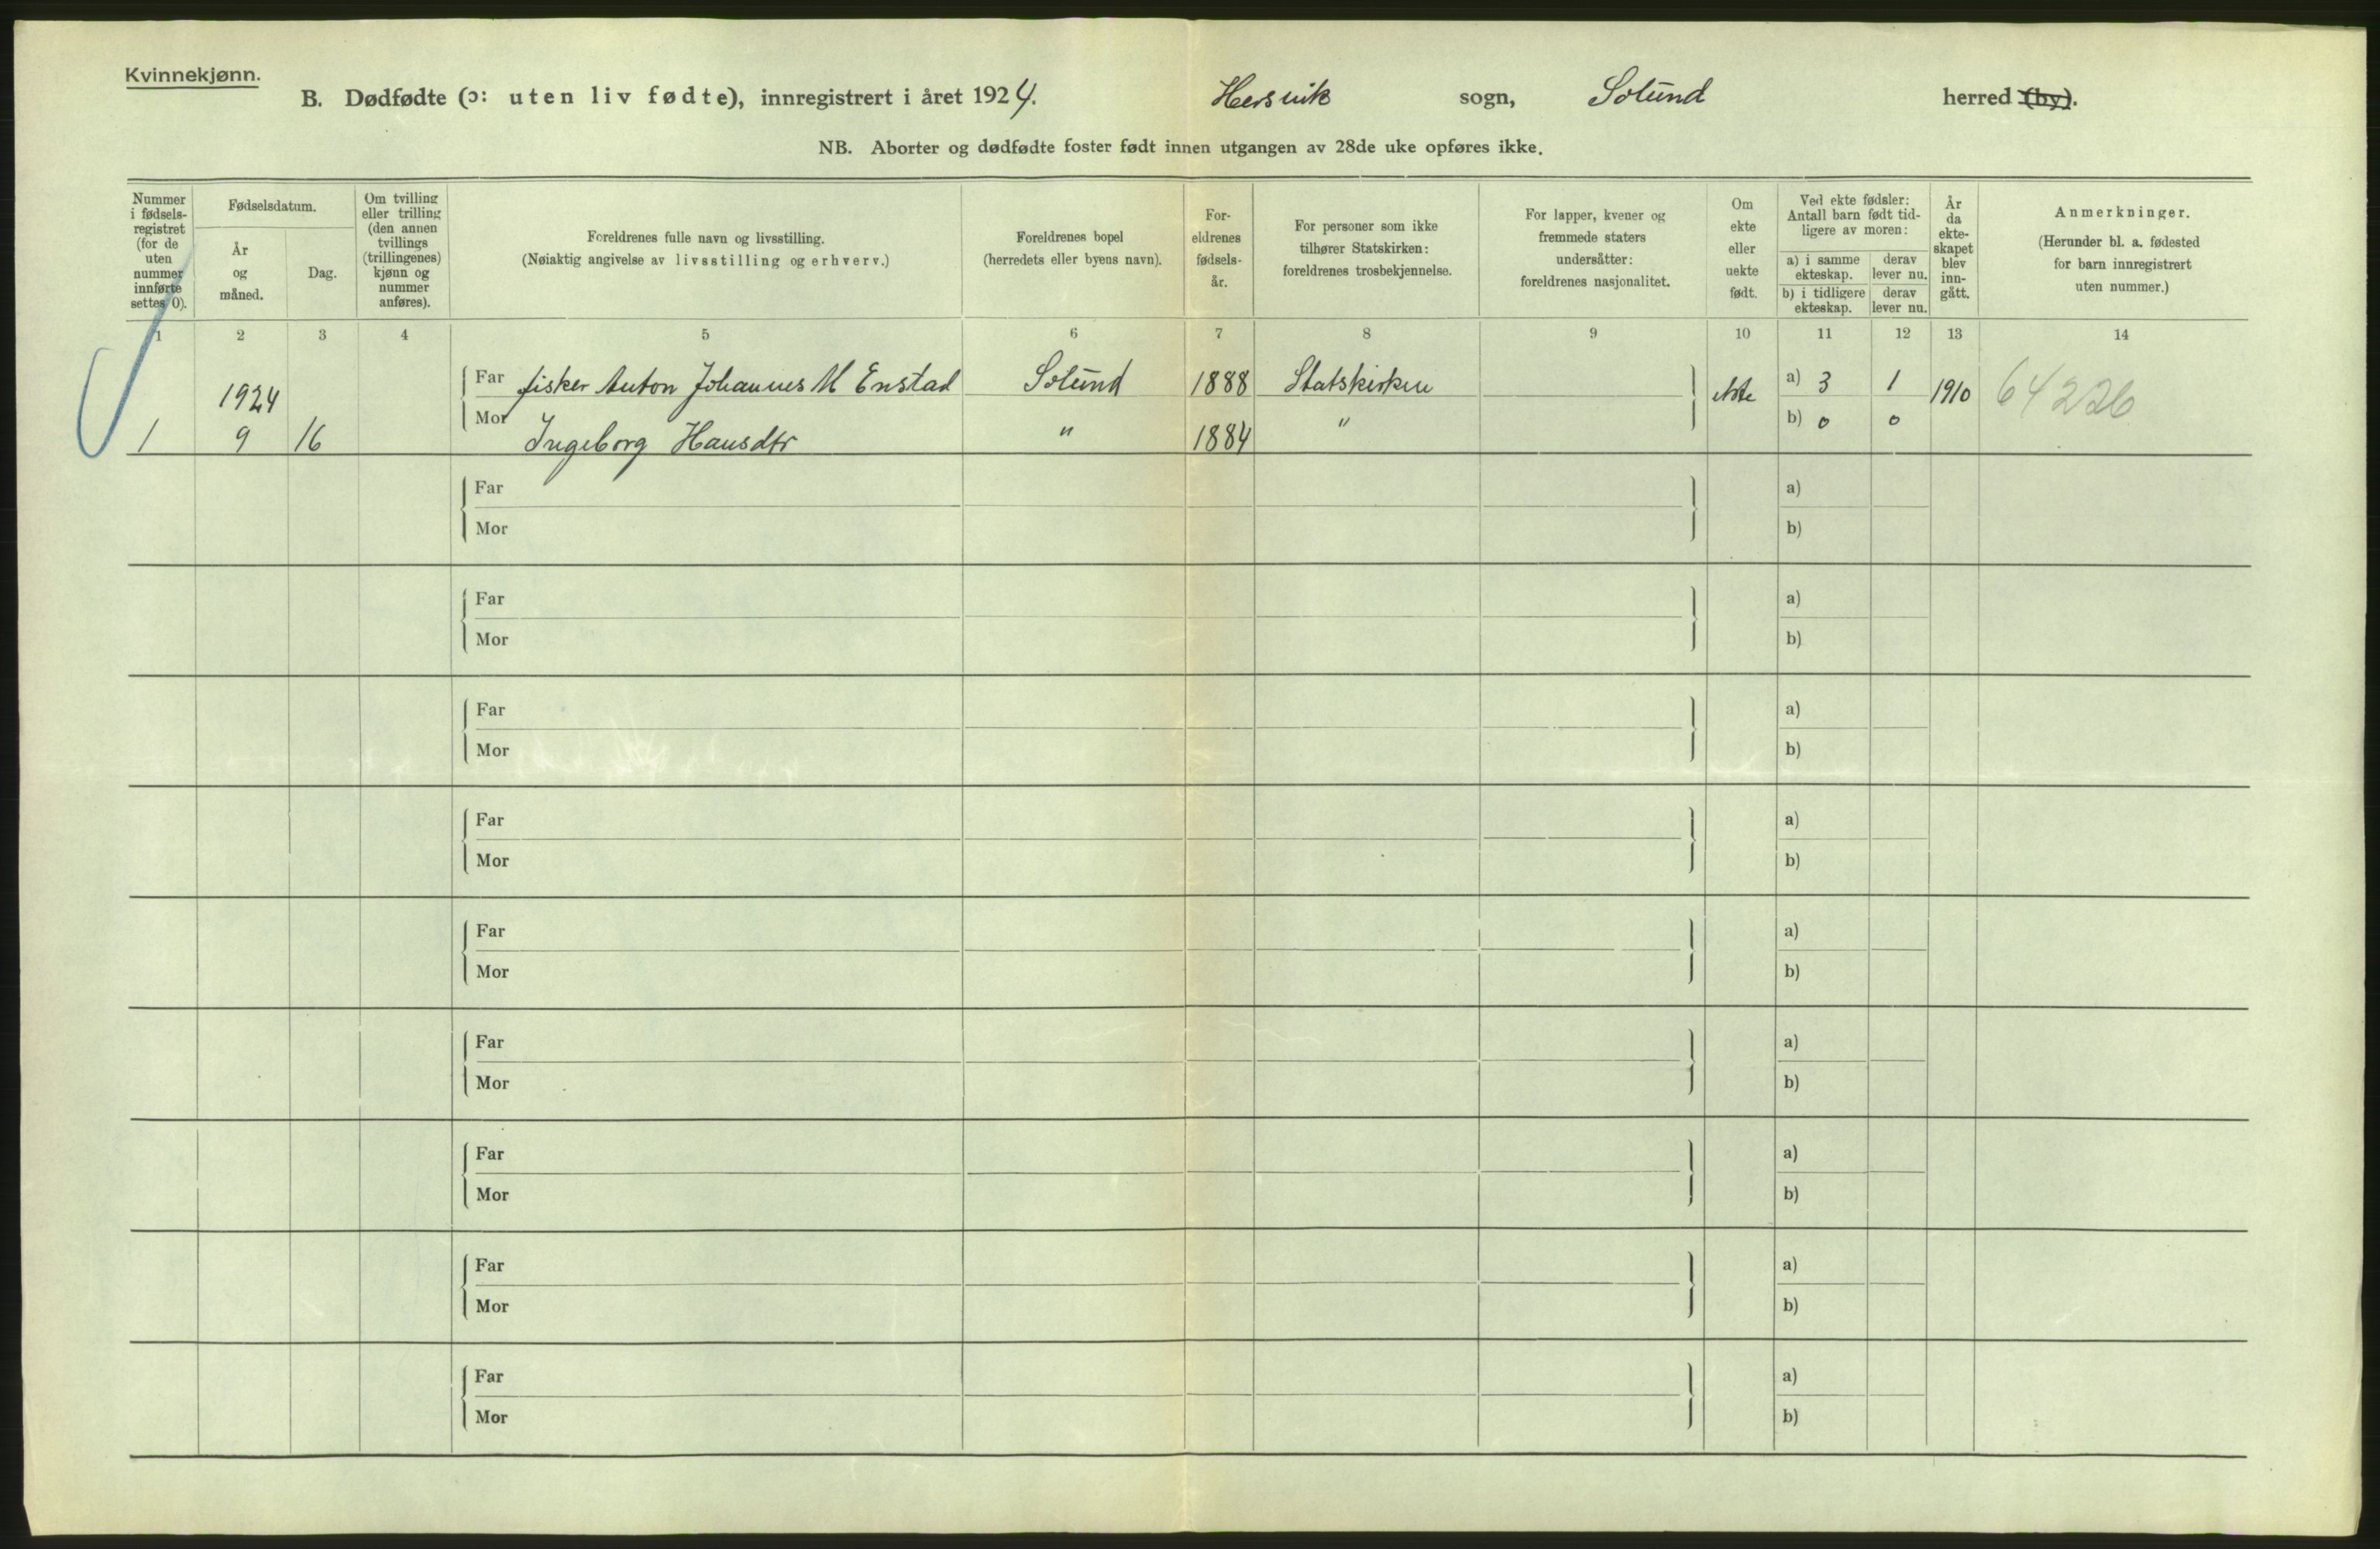 Kvinnekjønn.
B. Dødfødte (ɔ: uten liv fødte), innregistrert i året 1924. Hersvik sogn, Solund herred (by).
NB. Aborter og dødfødte foster født innen utgangen av 28de uke opføres ikke.
Nummer
i fødsels-
registret
(for de
uten
nummer
innførte
settes 0).
Fødselsdatum.
År
og
måned.
Dag.
Om tvilling
eller trilling
(den annen
tvillings
(trillingenes)
kjønn og
nummer
anføres).
Foreldrenes fulle navn og livsstilling.
(Nøiaktig angivelse av livsstilling og erhverv.)
Foreldrenes bopel
(herredets eller byens navn).
For-
eldrenes
fødsels-
år.
For personer som ikke
tilhører Statskirken:
foreldrenes trosbekjennelse.
For lapper, kvener og
fremmede staters
undersåtter:
foreldrenes nasjonalitet.
Om
ekte
eller
uekte
født.
Ved ekte fødsler:
Antall barn født tid-
ligere av moren:
a) i samme
ekteskap.
derav
lever nu.
b) i tidligere
ekteskap.
derav
lever nu.
År
da
ekte-
skapet
blev
inn-
gått.
Anmerkninger.
(Herunder bl. a. fødested
for barn innregistrert
uten nummer.)
1 2 3 4 5 6 7 8 9 10 11 12 13 14
Far fisker Anton Johannes M Enstad Solund 1888 Statskirken ekte a) 3 1 1910 64226
1924
Mor Ingeborg Hansdtr " 1884 " b) 0 0
1 9 16
Far a)
Mor b)
Far a)
Mor b)
Far a)
Mor b)
Far a)
Mor b)
Far a)
Mor b)
Far a)
Mor b)
Far a)
Mor b)
Far a)
Mor b)
Far a)
Mor b)